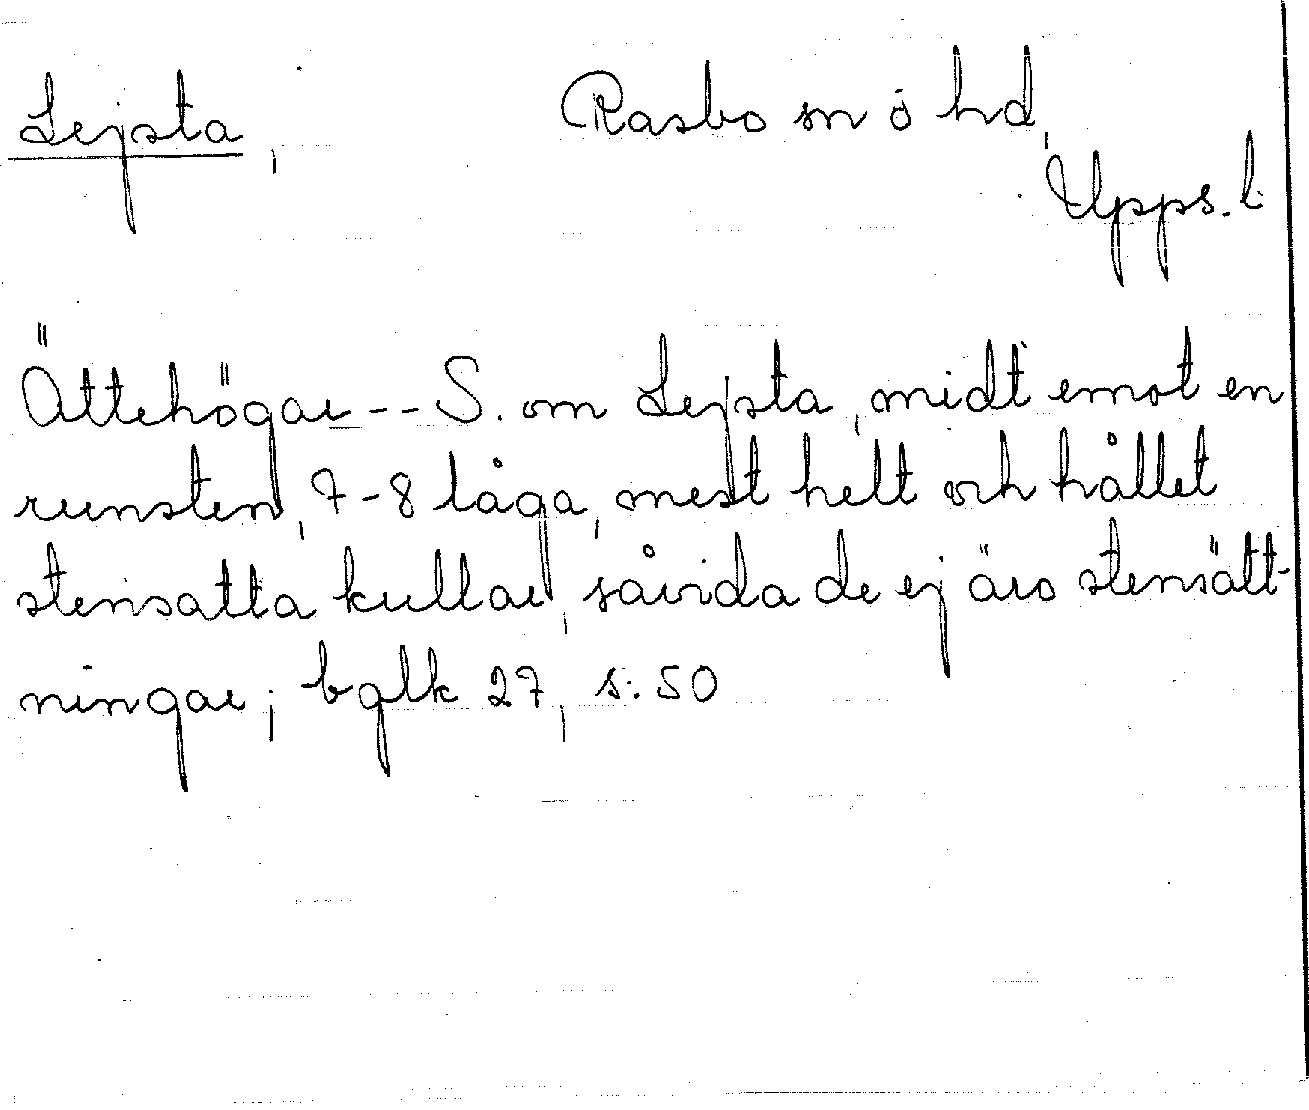 Lejsta, Rasbo sn o hd,
Upps. l.
Ättehögar -- S. om Lejsta, midt emot en
runsten, 7-8 låga, mest helt och hållet
stensatta kullar, såvida de ej äro stensätt-
ningar; bglk 27, s: 50